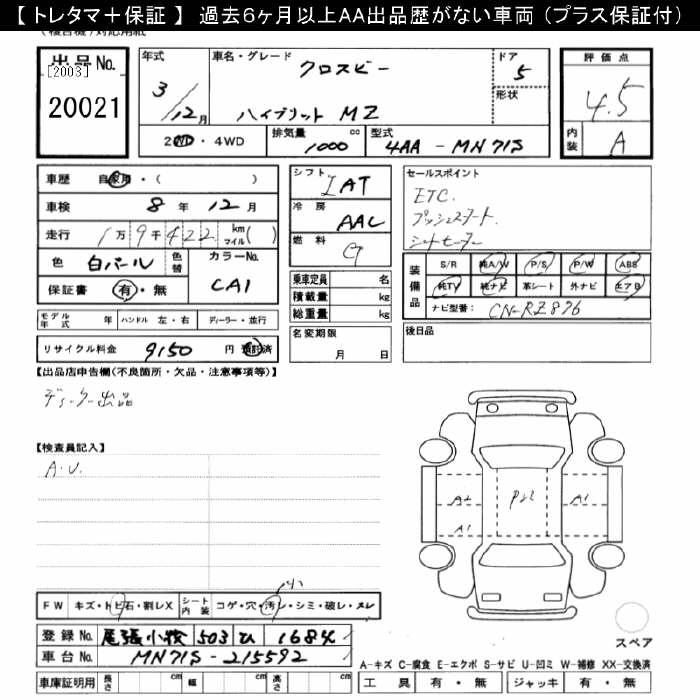 【 トレタマ＋保証 】 過去６ヶ月以上ＡＡ出品歴がない車両（プラス保証付）
出品No. [2003] 20021
年式 3/12月
車名・グレード クロスビー ハイブリット MZ
ドア 5
形状
評価点 4.5
内装 A
2WD・4WD 排気量 1000 cc 型式 4AA-MN71S
車歴 自家用・( )
車検 8年 12月
走行 1万9千422 km マイル( )
色 白パール 色替 カラーNo. CA1
保証書 有・無
モデル年式 年 ハンドル 左・右 ディーラー・並行
リサイクル料金 9150 円 預託済
シフト IAT
冷房 AAC
燃料 G
乗車定員 名
積載量 kg
総重量 kg
名変期限 月 日
セールスポイント
ETC.
プッシュスタート.
シートヒーター
装備品 S/R 純A/W P/S P/W ABS
純TV 純ナビ 革シート 外ナビ エアB
ナビ型番: CN-RZ876
後日品
【出品店申告欄(不良箇所・欠品・注意事項等)】
ディーラー出品
【検査員記入】
A.U.
A2 A1 A1
FW キズ・トビ石・割レX シート内装 コゲ・穴・汚レ・シミ・破レ・スレ
小
登録No. 尾張小牧 503 ひ 1684
車台No. MN71S-215592
車庫証明用 長さ cm 幅 cm 高さ cm
スペア
A-キズ C-腐食 E-エクボ S-サビ U-凹ミ W-補修 XX-交換済
工具 有・無 ジャッキ 有・無